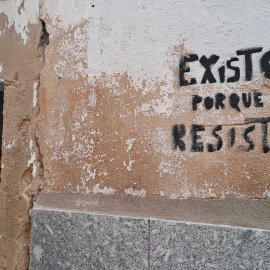 EXISTO
PORQUE
RESIST